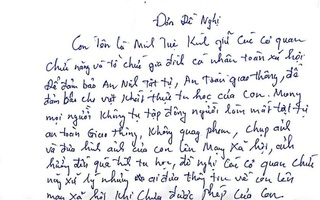 Đơn Đề Nghị
Con tên là Minh Tuệ Kính gửi Các Cơ quan
Chức năng và tổ chức gia đình cá nhân toàn xã hội
Để đảm bảo An Ninh trật tự, An Toàn giao thông, để
đảm bảo cho việc khất thực tu học của Con. Mong
mọi người không tụ tập đông người làm mất trật tự
an toàn Giao thông, Không quay phim, chụp ảnh
và đưa hình ảnh của con lên Mạng Xã hội, ảnh
hưởng đến quá trình tu học, đề nghị Các cơ quan chức
năng xử lý những ai đưa thông tin về con lên
mạng xã hội khi Chưa được phép của Con.